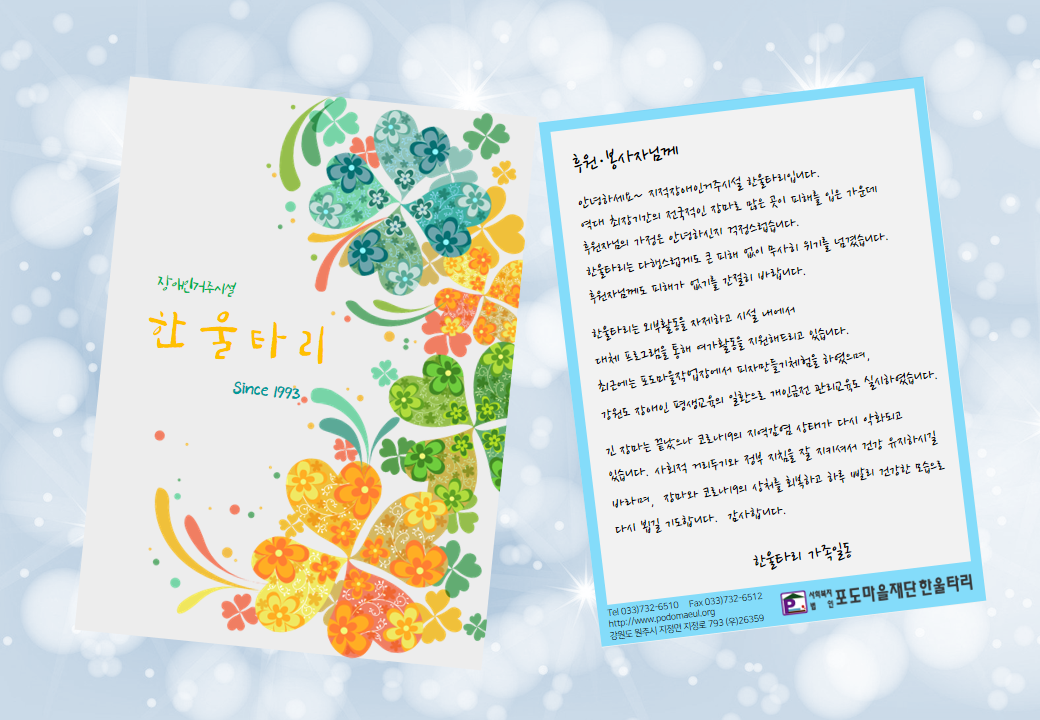 장애인거주시설
한울타리
Since 1993
후원·봉사자님께
안녕하세요~ 지적장애인거주시설 한울타리입니다.
역대 최장기간의 전국적인 장마로 많은 곳이 피해를 입은 가운데
후원자님의 가정은 안녕하신지 걱정스럽습니다.
한울타리는 다행스럽게도 큰 피해 없이 무사히 위기를 넘겼습니다.
후원자님께도 피해가 없기를 간절히 바랍니다.
한울타리는 외부활동을 자제하고 시설 내에서
대체 프로그램을 통해 여가활동을 지원해드리고 있습니다.
최근에는 포도마을작업장에서 피자만들기체험을 하였으며,
강원도 장애인 평생교육의 일환으로 개인금전 관리교육도 실시하였습니다.
긴 장마는 끝났으나 코로나19의 지역감염 상태가 다시 악화되고
있습니다. 사회적 거리두기와 정부 지침을 잘 지키셔서 건강 유지하시길
바라며, 장마와 코로나19의 상처를 회복하고 하루 빨리 건강한 모습으로
다시 뵙길 기도합니다. 감사합니다.
한울타리 가족일동
Tel 033)732-6510 Fax 033)732-6512
http://www.podomaeul.org
강원도 원주시 지정면 지정로 793 (우)26359
사회복지법인 포도마을재단한울타리